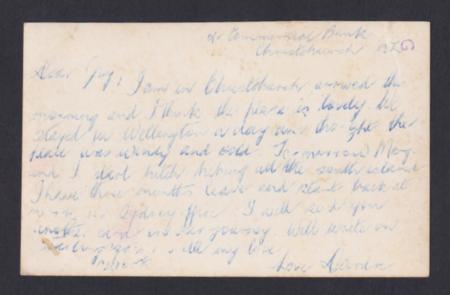 c/ Commercial Bank
Christchurch NZ
Dear Guy, I am in Christchurch arrived this
morning and I think the place is lovely. We
stayed in Wellington a day and thought the
place was windy and cold. Tomorrow Mary
and I start hitch hiking all the south island
I have three months leave and start back at
in Sydney office. I will send you
another card on our journey. Will write on
all my love
Love